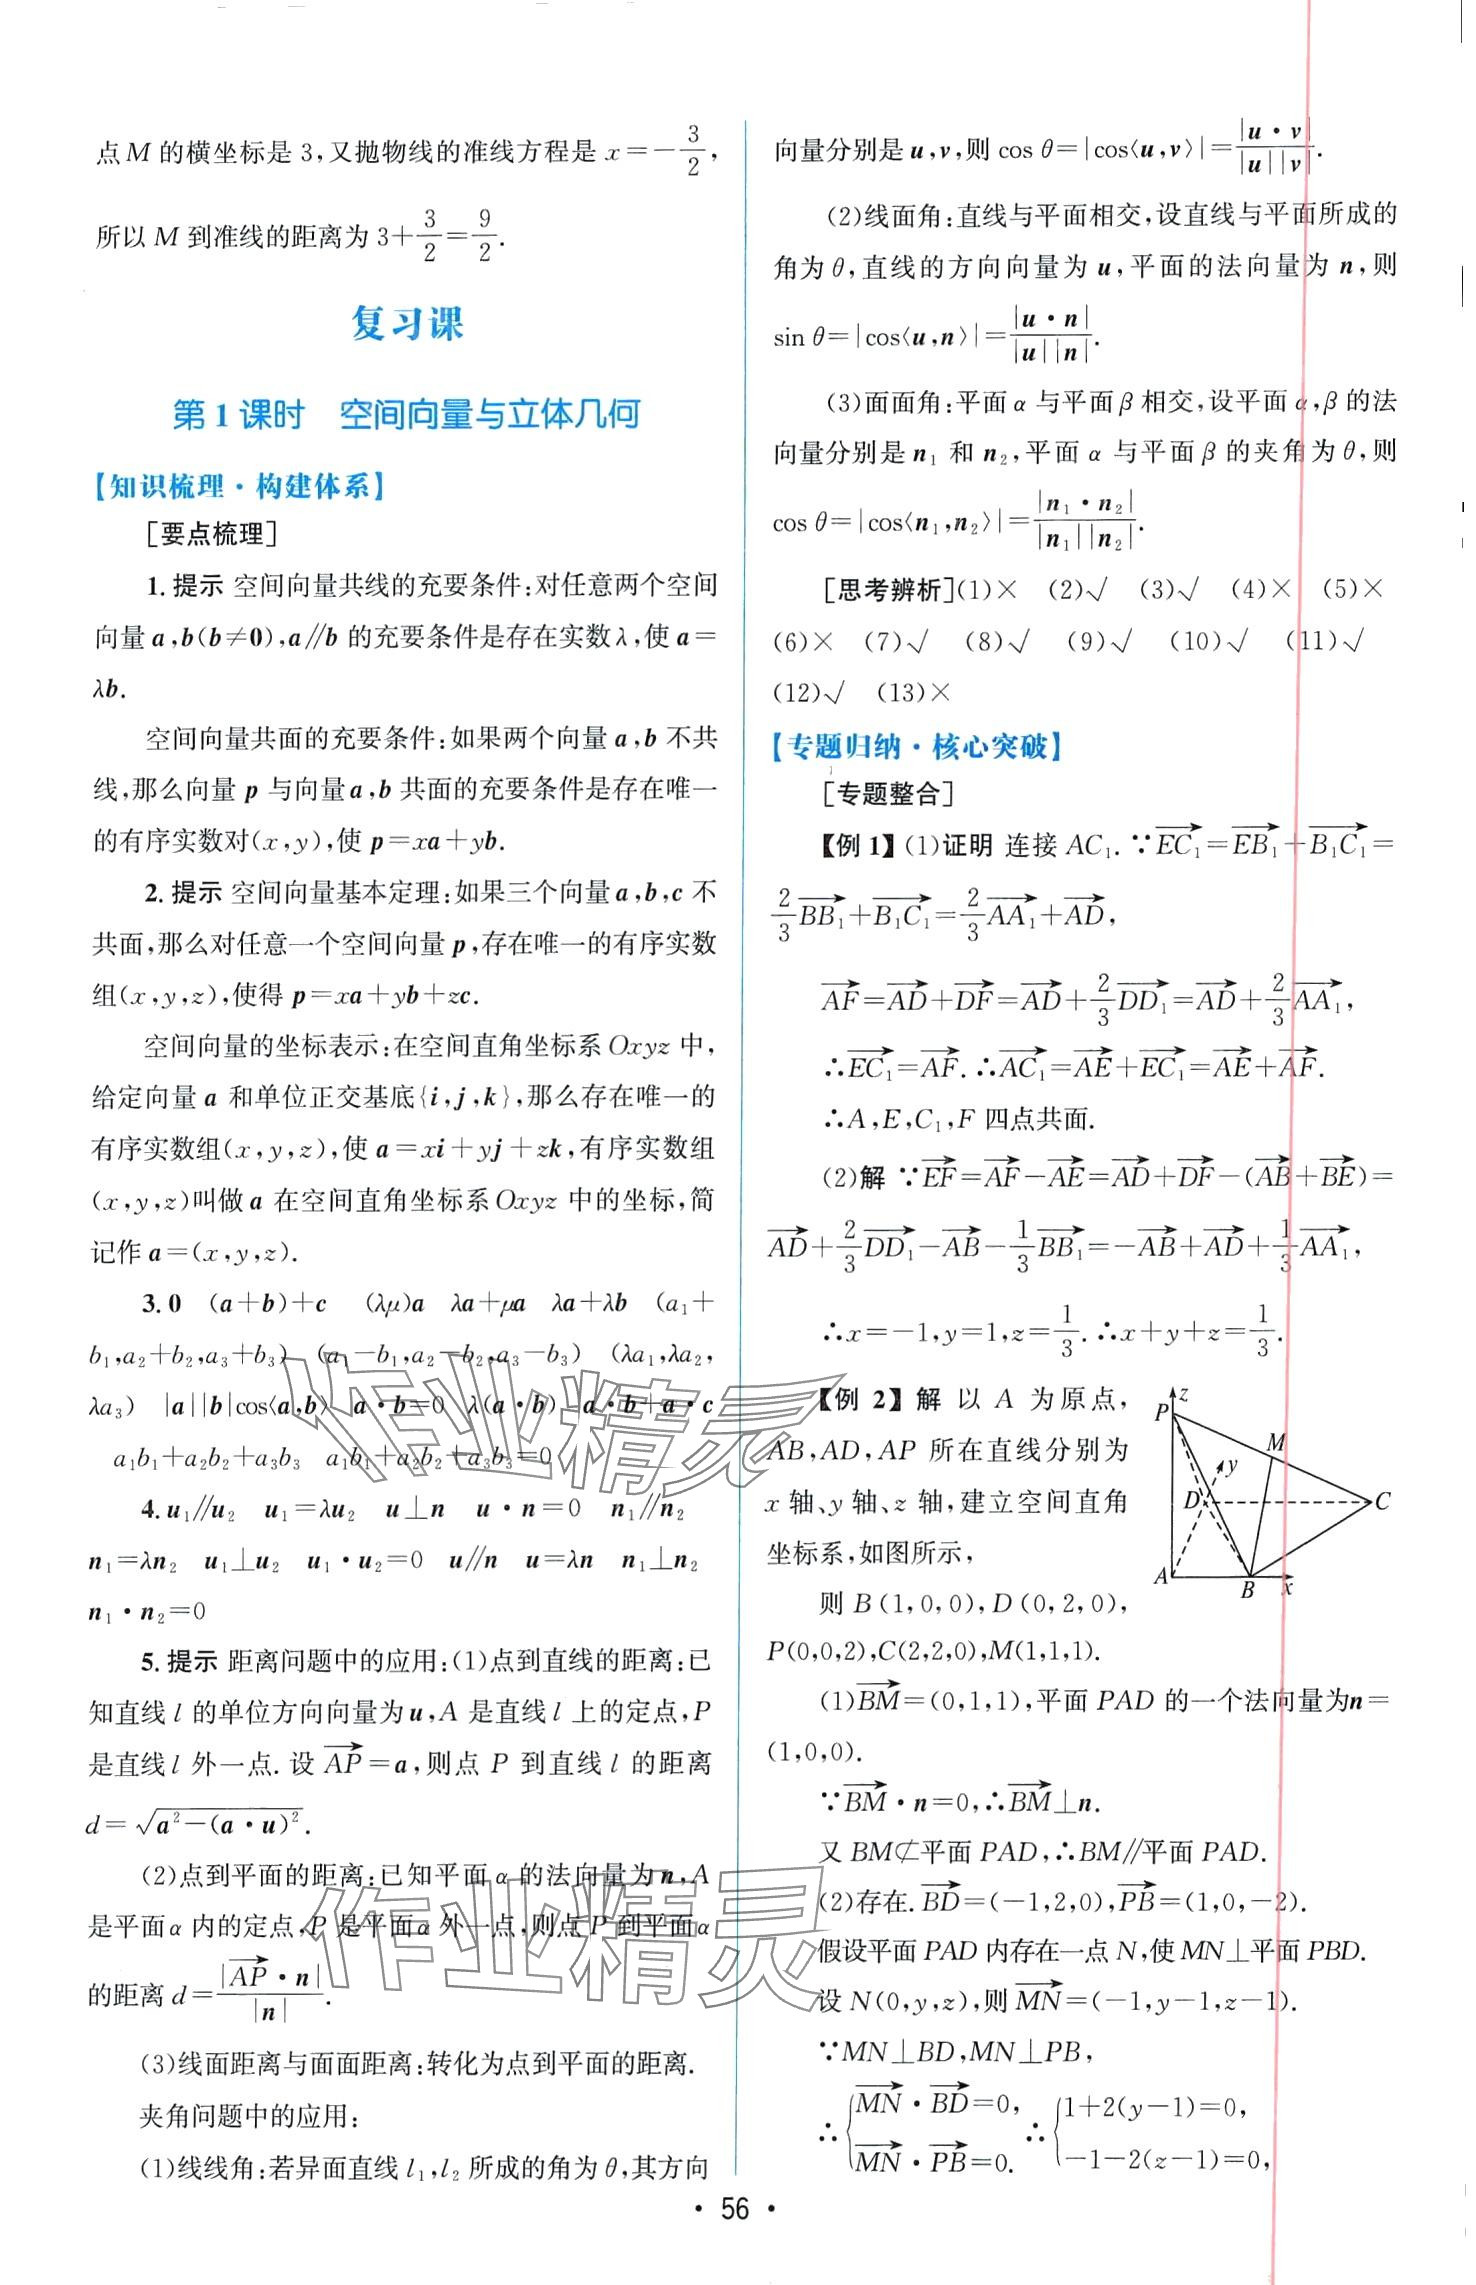 点M的横坐标是3,又抛物线的准线方程是x=-3/2,
所以M到准线的距离为3+3/2=9/2.
复习课
第1课时　空间向量与立体几何
【知识梳理·构建体系】
[要点梳理]
1.提示 空间向量共线的充要条件:对任意两个空间
向量a,b(b≠0),a∥b的充要条件是存在实数λ,使a=
λb.
空间向量共面的充要条件:如果两个向量a,b不共
线,那么向量p与向量a,b共面的充要条件是存在唯一
的有序实数对(x,y),使p=xa+yb.
2.提示 空间向量基本定理:如果三个向量a,b,c不
共面,那么对任意一个空间向量p,存在唯一的有序实数
组(x,y,z),使得p=xa+yb+zc.
空间向量的坐标表示:在空间直角坐标系Oxyz中,
给定向量a和单位正交基底{i,j,k},那么存在唯一的
有序实数组(x,y,z),使a=xi+yj+zk,有序实数组
(x,y,z)叫做a在空间直角坐标系Oxyz中的坐标,简
记作a=(x,y,z).
3.0　(a+b)+c　(λμ)a　λa+μa　λa+λb　(a₁+
b₁,a₂+b₂,a₃+b₃)　(a₁-b₁,a₂-b₂,a₃-b₃)　(λa₁,λa₂,
λa₃)　|a||b|cos⟨a,b⟩　a·b=0　λ(a·b)　a·b+a·c
a₁b₁+a₂b₂+a₃b₃　a₁b₁+a₂b₂+a₃b₃=0
4.u₁∥u₂　u₁=λu₂　u⊥n　u·n=0　n₁∥n₂
n₁=λn₂　u₁⊥u₂　u₁·u₂=0　u∥n　u=λn　n₁⊥n₂
n₁·n₂=0
5.提示 距离问题中的应用:(1)点到直线的距离:已
知直线l的单位方向向量为u,A是直线l上的定点,P
是直线l外一点.设AP→=a,则点P到直线l的距离
d=√(a²-(a·u)²).
(2)点到平面的距离:已知平面α的法向量为n,A
是平面α内的定点,P是平面α外一点,则点P到平面α
的距离d=|AP→·n|/|n|.
(3)线面距离与面面距离:转化为点到平面的距离.
夹角问题中的应用:
(1)线线角:若异面直线l₁,l₂所成的角为θ,其方向
向量分别是u,v,则cos θ=|cos⟨u,v⟩|=|u·v|/|u||v|.
(2)线面角:直线与平面相交,设直线与平面所成的
角为θ,直线的方向向量为u,平面的法向量为n,则
sin θ=|cos⟨u,n⟩|=|u·n|/|u||n|.
(3)面面角:平面α与平面β相交,设平面α,β的法
向量分别是n₁和n₂,平面α与平面β的夹角为θ,则
cos θ=|cos⟨n₁,n₂⟩|=|n₁·n₂|/|n₁||n₂|.
[思考辨析](1)×　(2)√　(3)√　(4)×　(5)×
(6)×　(7)√　(8)√　(9)√　(10)√　(11)√
(12)√　(13)×
【专题归纳·核心突破】
[专题整合]
【例1】(1)证明 连接AC₁.∵EC₁→=EB₁→+B₁C₁→=
2/3BB₁→+B₁C₁→=2/3AA₁→+AD→,
AF→=AD→+DF→=AD→+2/3DD₁→=AD→+2/3AA₁→,
∴EC₁→=AF→.∴AC₁→=AE→+EC₁→=AE→+AF→.
∴A,E,C₁,F四点共面.
(2)解 ∵EF→=AF→-AE→=AD→+DF→-(AB→+BE→)=
AD→+2/3DD₁→-AB→-1/3BB₁→=-AB→+AD→+1/3AA₁→,
∴x=-1,y=1,z=1/3.∴x+y+z=1/3.
【例2】解 以A为原点,
AB,AD,AP所在直线分别为
x轴、y轴、z轴,建立空间直角
坐标系,如图所示,
z
P
M
y
D
C
A
B
x
则B(1,0,0),D(0,2,0),
P(0,0,2),C(2,2,0),M(1,1,1).
(1)BM→=(0,1,1),平面PAD的一个法向量为n=
(1,0,0).
∵BM→·n=0,∴BM→⊥n.
又BM⊄平面PAD,∴BM∥平面PAD.
(2)存在.BD→=(-1,2,0),PB→=(1,0,-2).
假设平面PAD内存在一点N,使MN⊥平面PBD.
设N(0,y,z),则MN→=(-1,y-1,z-1).
∵MN⊥BD,MN⊥PB,
∴{MN→·BD→=0, ∴{1+2(y-1)=0,
MN→·PB→=0. -1-2(z-1)=0,
·56·
作业精灵
作业精灵